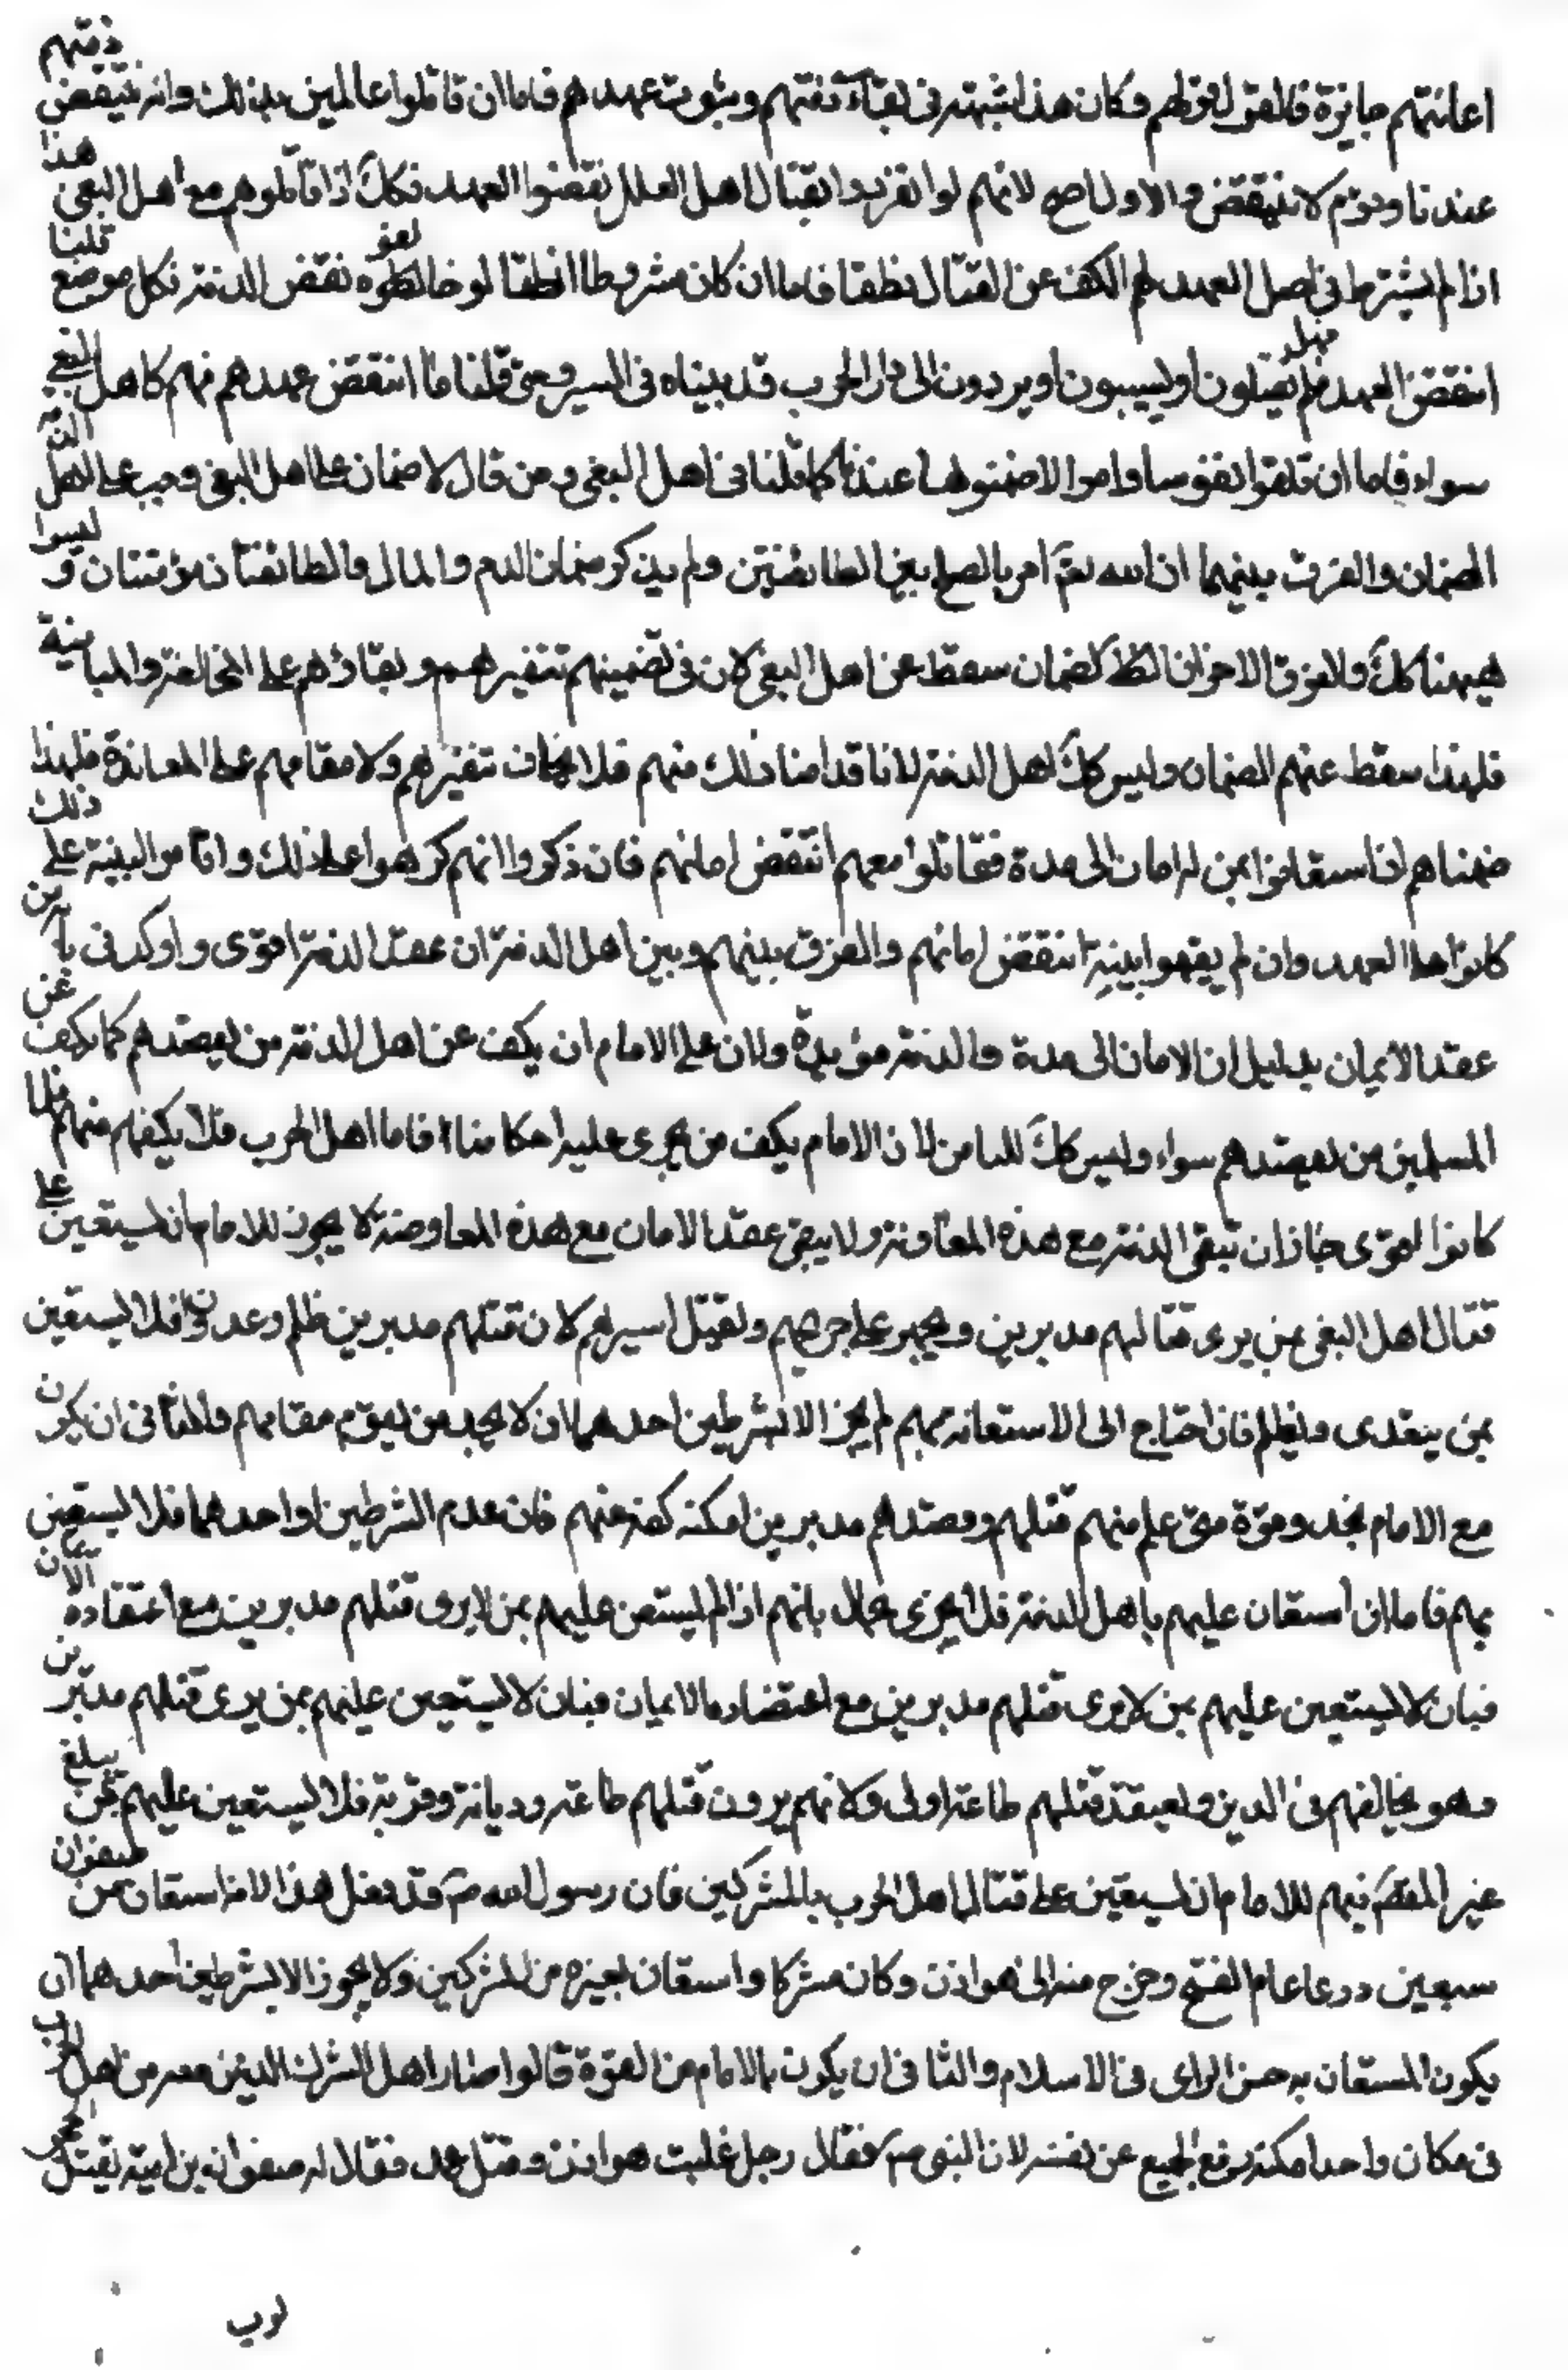 اعانتهم جايزة فالقول قولهم وكان هذا شبهة في بقاء ذمتهم وثبوت عهدهم فاما ان قاتلوا عالمين بذلك وانه ينتقض ذمتهم
عندنا وقوم لا ينتقض والاول اصح لانهم لو انفردوا بقتال اهل العدل نقضوا العهد فكك اذا قاتلوهم مع اهل البغى هذا
اذا لم يشترط في اصل العهد لهم الكف عن القتال نطقا فاما ان كان مشروطا نطقا لو خالفوه نقض الذمة فكل موضع قلنا
انتقض العهد فهل يقتلون او يسبون او يردون الى دار الحرب قد بيناه في السير ومتى قلنا ما انتقض عهدهم فهم كاهل البغى
سواء فاما ان تلفوا نفوسا واموالا ضمنوها عندنا كما قلنا في اهل البغى ومن قال لا ضمان على اهل البغى وجب على اهل الذمة
الضمان والفرق بينهما ان الله تع امر بالصلح بين الطائفتين ولم يذكر ضمان الدم والمال والطائفتان مؤمنتان وليسوا
هيهنا كك والفرق الاخر ان الضمان سقط عن اهل البغى لان في تضمينهم تنفيرهم وبقاؤهم على المخالفة والمباينة
فلهذا سقط عنهم الضمان وليس كك اهل الذمة لانا قد امنا ذلك منهم فلا يخاف تنفيرهم ولا مقامهم على المعاندة فلهذا
ضمناهم اذا استعانوا بمن له امان الى مدة فقاتلوا معهم انتقض امانهم فان ذكروا انهم كرهوا على ذلك واقاموا البينة على ذلك
كانوا على العهد وان لم يقيموا بينة انتقض امانهم والفرق بينهم وبين اهل الذمة ان عقد الذمة اقوى واوكد في بابه من
عقد الايمان بدليل ان الامان الى مدة والذمة مؤبدة ولان على الامام ان يكف عن اهل الذمة من يقصدهم كما يكف عن
المسلمين من يقصدهم سواء وليس كك المستامن لان الامام يكف من يجرى عليه احكامنا فاما اهل الحرب فلا يكفهم منهم فلما
كانوا اقوى جاز ان تبقى الذمة مع هذه المعاونة ولا يبقى عقد الامان مع هذه المعاوضة لا يجوز للامام ان يستعين على
قتال اهل البغى بمن يرى قتالهم مدبرين ويجهز على جريحهم ويقتل اسيرهم لان قتلهم مدبرين ظلم وعدوان فلا يستعين
بمن يتعدى ويظلم فان احتاج الى الاستعانة بهم لم يجز الا بشرطين احدهما ان لا يجد من يقوم مقامهم والثانى ان يكون
مع الامام نجدو قوة متى علم منهم قتلهم وقصدهم مدبرين امكنه كفه عنهم فان عدم الشرطين او احدهما فلا يستعين
بهم فاما ان استعان عليهم باهل الذمة فلا يجرى بحال بانهم اذا لم يستعن عليهم بمن لا يرى قتلهم مدبرين مع اعتقاده
فبان لا يستعين عليهم بمن لا يرى قتلهم مدبرين مع اعتضاده بالايمان فبان لا يستعين عليهم بمن يرى قتلهم مدبرين
وهو يخالفهم في الدين ويعتقد قتلهم طاعة اولى ولانهم يرون قتلهم طاعة وديانة وقربة فلا يستعين عليهم بمن يبلغ
غير المقصد فيهم للامام ان يستعين على قتال اهل الحرب بالمشركين فان رسول الله ص قد فعل هذا لانه استعان من صفوان
سبعين درعا عام الفتح وخرج معه الى هوازن وكان مشركا واستعان بغيره من المشركين ولا يجوز الا بشرطين احدهما ان
يكون المستعان به حسن الراى في الاسلام والثانى ان يكون بالامام من القوة قالوا صار اهل الشرك الذين معه من اهل الحرب
في مكان واحد امكنه دفع الجميع عن نفسه لان النبى ص فقال رجل غلبت هوازن وقتل محمد فقال له صفوان بن امية بفيك الحجر
لرب